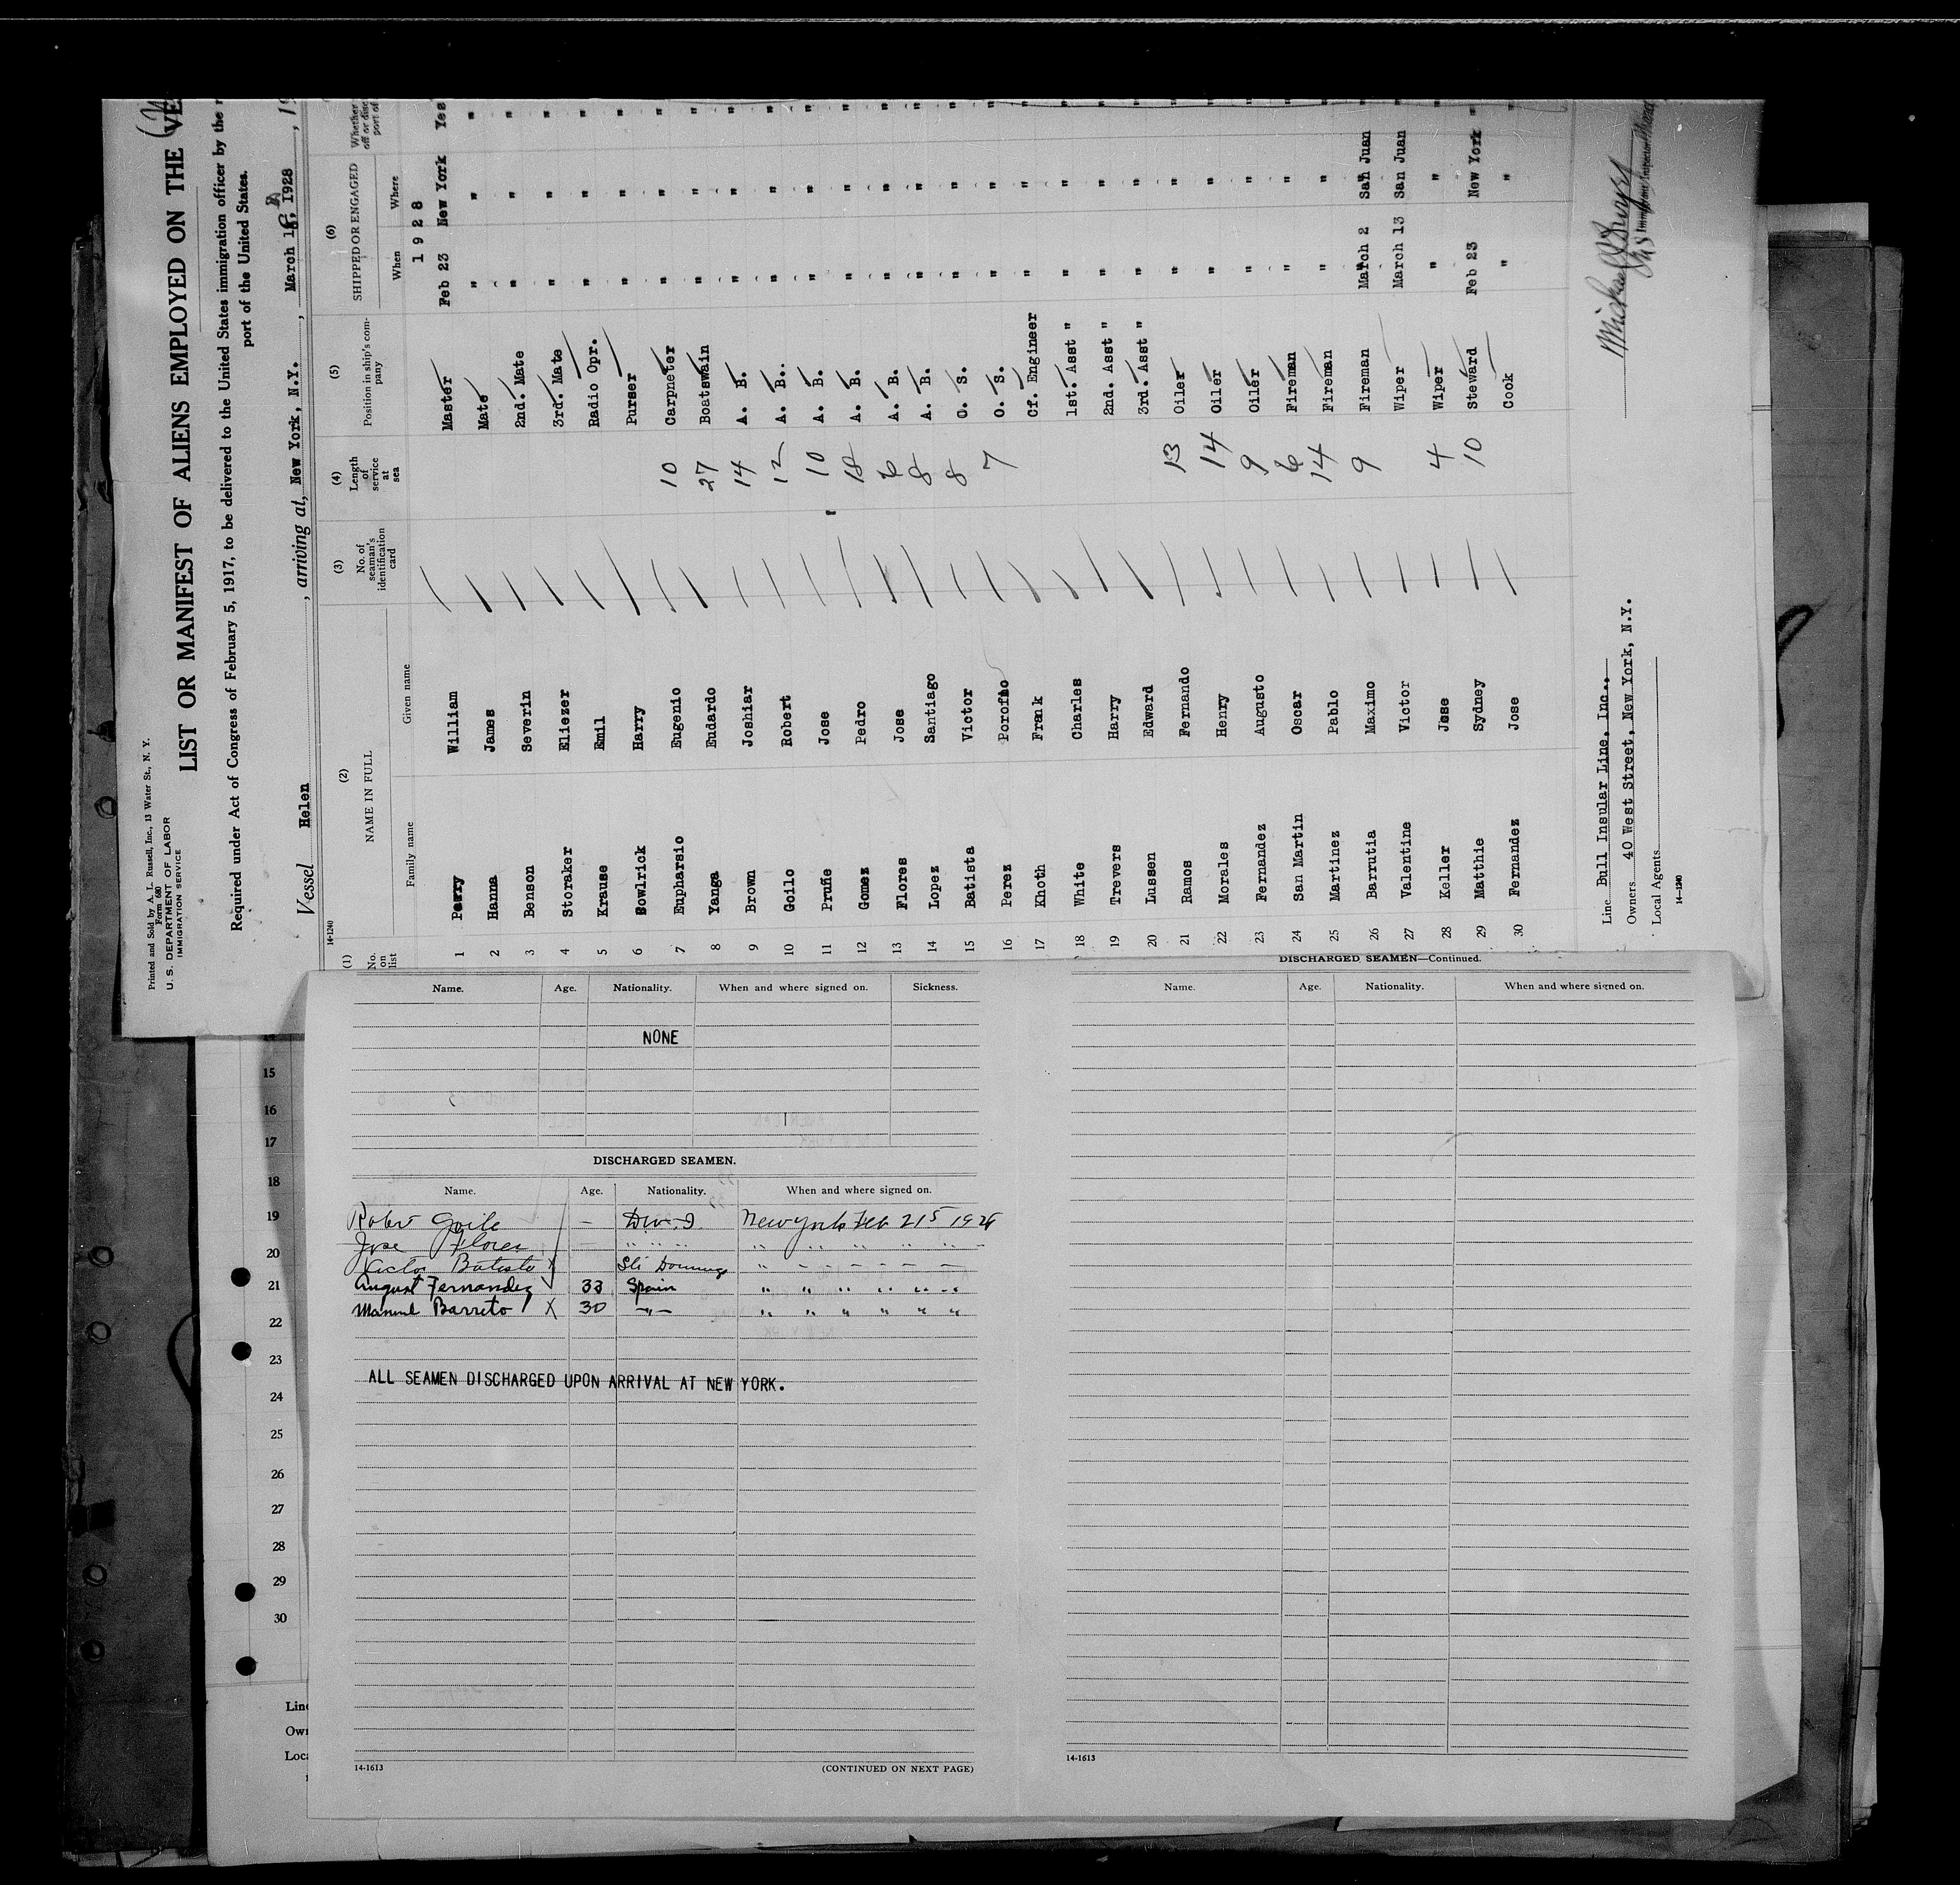 Printed and Sold by A. L. Russell, Inc., 13 Water St., N. Y.
Form 680
U. S. DEPARTMENT OF LABOR
IMMIGRATION SERVICE
LIST OR MANIFEST OF ALIENS EMPLOYED ON THE VE
Required under Act of Congress of February 5, 1917, to be delivered to the United States immigration officer by the r
port of the United States.
Vessel Helen , arriving at, New York, N.Y. , March , 1928 , 19
14-1240
(1) (2) (3) (4) (5) (6)
No. on list NAME IN FULL No. of seaman's identification card Length of service at sea Position in ship's company SHIPPED OR ENGAGED Whether
off or disc
port of
Family name Given name When Where
1928
1 Perry William Master Feb 23 New York Yes
2 Hanna James Mate " " "
3 Benson Severin 2nd. Mate " " "
4 Storaker Eliezer 3rd. Mate " " "
5 Krause Emil Radio Opr. " " "
6 Sowlrick Harry Purser " " "
7 Eupharsio Eugenio 10 Carpneter " " "
8 Yanga Eudardo 27 Boatswain " " "
9 Brown Joshiar 14 A. B. " " "
10 Goilo Robert 12 A. B.. " " "
11 Prufie Jose 10 A. B. " " "
12 Gomez Pedro 18 A. B. " " "
13 Flores Jose 6 A. B. " " "
14 Lopez Santiago 8 A. B. " " "
15 Batista Victor 8 O. S. " " "
16 Perez 7 O. S. " " "
17 Khoth Frank Cf. Engineer " " "
18 White Charles 1st. Asst " " " "
19 Trevers Harry 2nd. Asst " " " "
20 Lussen Edward 3rd. Asst " " " "
21 Ramos Fernando 13 Oiler " " "
22 Morales Henry 14 Oiler " " "
23 Fernandez Augusto 9 Oiler " " "
24 San Martin Oscar 6 Fireman " " "
25 Martinez Pablo 14 Fireman " " "
26 Barrutia Maximo 9 Fireman March 2 San Juan "
27 Valentine Victor Wiper March 13 San Juan "
28 Keller Jose 4 Wiper " " "
29 Matthie Sydney 10 Steward Feb 23 New York "
30 Fernandez Jose Cook " " "
Line Bull Insular Line, Inc.,
Owners 40 West Street, New York, N.Y.
Local Agents
14-1240
Immigrant Inspector
Name. Age. Nationality. When and where signed on. Sickness.
NONE
DISCHARGED SEAMEN.
Name. Age. Nationality. When and where signed on.
Robert Goilo — D.W.I. New York Feb 21 1928
Jose Flores — " " " " " " " " "
Victor Batista X Sto Domingo " – – – – –
August Fernandez 33 Spain " " " " " "
Manuel Barreto X 30 —"— " " " " " "
ALL SEAMEN DISCHARGED UPON ARRIVAL AT NEW YORK.
14-1613
(CONTINUED ON NEXT PAGE)
DISCHARGED SEAMEN—Continued.
Name. Age. Nationality. When and where signed on.
14-1613
15
16
17
18
19
20
21
22
23
24
25
26
27
28
29
30
Line
Own
Loca